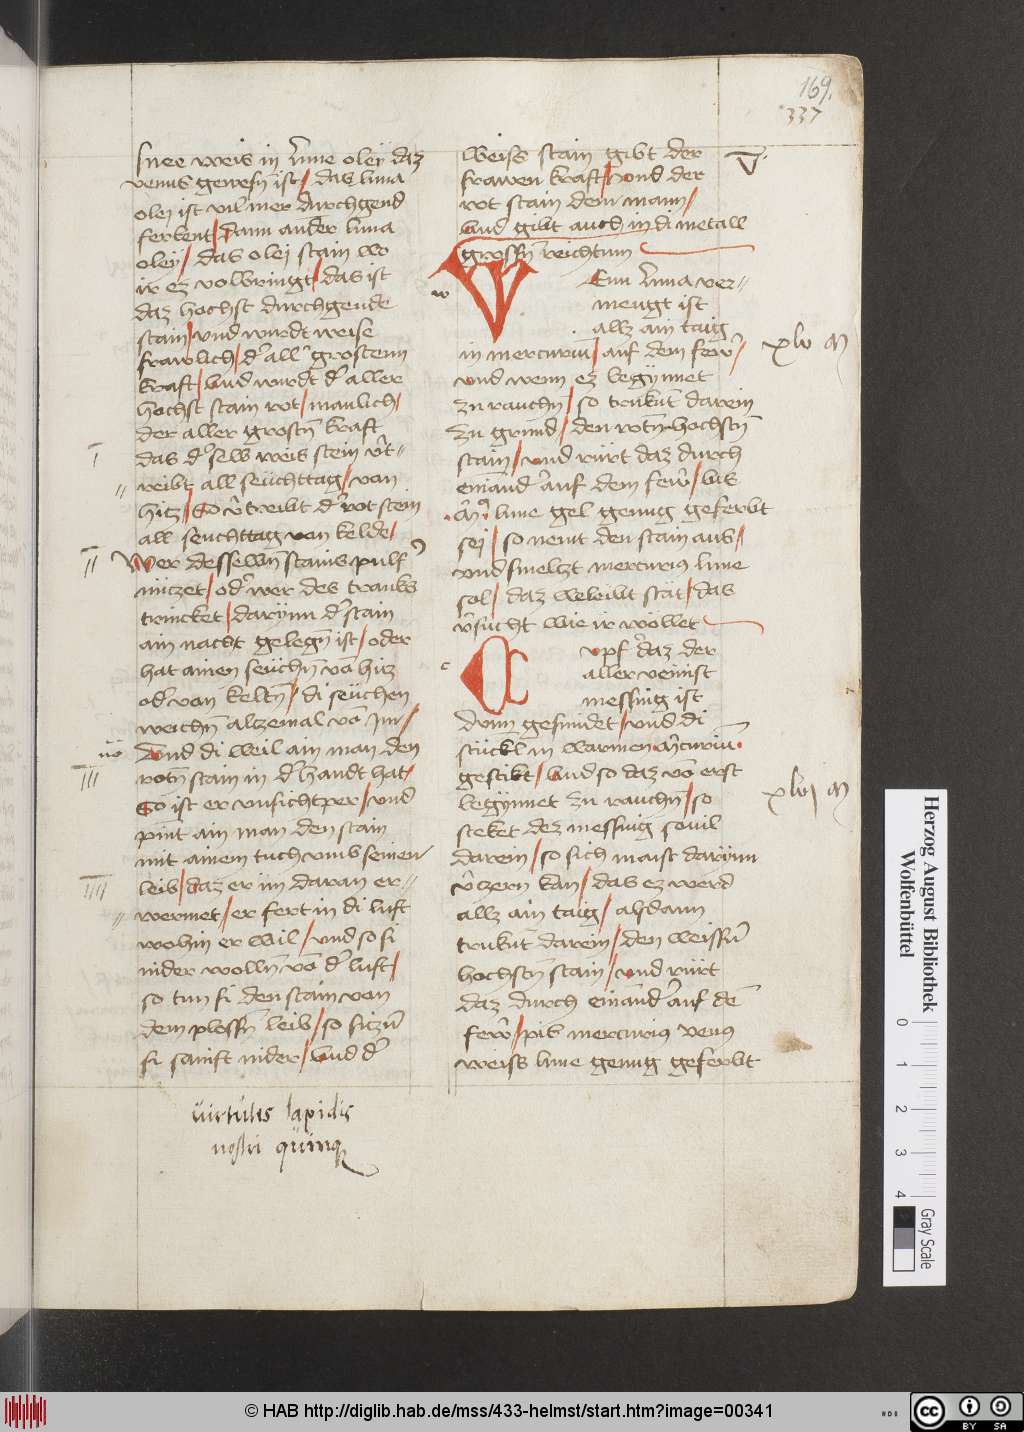 169.
337
snee weis in lune olej daz
venus gewesn ist / das luna
olej ist vil mer durchgend
ferbent / dann ander luna
oley / das olej stain wo
ir ez volbringt / das ist
daz hochst durchgende
stain / und wurdt weise
frawlich / d' all' grostenn
kraft / und wurdt d' aller
hochst stain rot / manlich /
der aller grostn kraft
I
das d' selb weis stein v't-
reibt all seuchttag / von
hitz / So v'treibt d' rot stein
all seuchttag von kelde /
II
Wer desselbn stains pulf'
nutzet / od' wer des tranks
trincket / darynn d' stain
ain nacht gelegn ist / oder
hat ainen seuchn vo hitz
od' von keltn / di seuchen
weichn alzemal vo im /
Und di weil ain man den
III
rotn stain in d' handt hat /
So ist er unsichtper / und
pint ain man den stain
mit ainem tuch umb seinen
IIII
leib / daz er im daran er-
wermet / er fert in di luft
wohin er wil / und so si
nider wolln vo d' luft /
so tun si den stain von
dem plossn leib / so sitzn
si sanft nider / und d'
virtutes lapidis
nostri quinque
weiss stain gibt der
V
frawen kraft / und der
rot stain dem mann /
und gibt auch in di metall
grossn reichtum
w
Wenn luna ver-
mengt ist
allz ain taig
xlv
in mercuriu / auf dem few' /
und wenn ez begynnet
zu rauchn / so trukt darein
zu grund / den rotn hochstn
stain / und rürt daz durch
einand' auf dem few' / bis
lune gel genug geferbt
sej / so nemt den stain aus /
und smeltzt mercurius lune
sol / daz beleibt stät / das
v'sucht wie ir wöllet
c
Cupf' daz der
aller veinist
messing ist
dunn gesmidet / und di
stückl in warmen m'curiu
gestikt / und so daz vo erst
xlvj
begynnet zu rauchn / so
steket dez messing sovil
darein / so sich maist darynn
v'zern kan / das ez werd
allz ain taig / alsdann
trukt darein / den weissn
hochstn stain / und rürt
daz durch einand' auf de
few' / pis mercurius venus
weiss lune genug geferbt
Herzog August Bibliothek
Wolfenbüttel
0 1 2 3 4
Gray Scale
© HAB http://diglib.hab.de/mss/433-helmst/start.htm?image=00341
cc BY SA